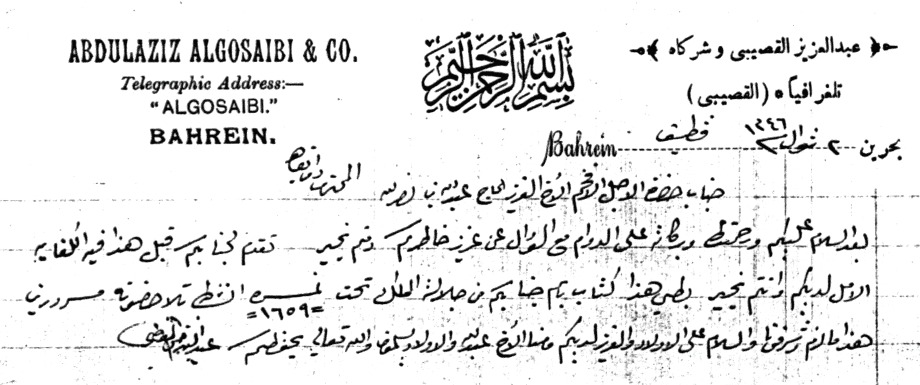 ABDULAZIZ ALGOSAIBI & CO.
Telegraphic Address:—
"ALGOSAIBI."
BAHREIN.
بسم الله الرحمن الرحيم
عبدالعزيز القصيبي وشركاه
تلغرافياً • (القصيبي)
Bahrein
بحرين ٢ شوال ١٣٤٦ قطيف
جناب حضرة الاجل الافخم الاخ العزيز الحاج عبدالله بن نصرالله المحترم
بعد السلام عليكم ورحمة الله وبركاته على الدوام مع السؤال عن عزيز خاطركم دمتم بخير تقدم لجنابكم قبل هذا فيه الكفايه
الامل لديكم وانتم بخير بطي هذا كتاب باسم جنابكم من جلالة الملك تحت نمره ان شاء الله تلاحضونه مسرورين
=١٦٥٩=
هذا ما لزم تعريفه والسلام على الاولاد والعزيز لديكم ومنا الاخ عبدالله والاولاد يسلمون والله تعالى يحفظكم